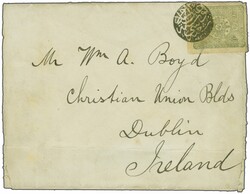 Mr Wm A. Boyd
Christian Union Blds
Dublin
Ireland